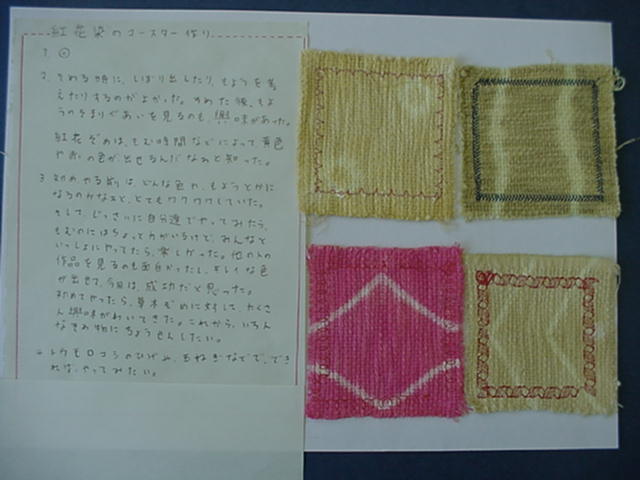 紅花染のコースター作り
1. ◎
2. そめる時に、しばり出したり、もようを考
えたりするのがよかった。そめた後、もよ
うのそまりぐあいを見るのも、興味があった。
紅花ぞめは、もむ時間などによって黄色
や赤の色が出せるんだなぁと知った。
3 初めやる前は、どんな色や、もようとかに
なるのかなぁと、とてもワクワクしていた。
そして、じっさいに自分達でやってみたら、
もむのにはちょっと力がいるけど、みんなと
いっしょにやってたら、楽しかった。他の人の
作品を見るのも面白かったし、キレイな色
が出せて、今回は、成功だと思った。
初めてやったら、草木ぞめに対して、たくさ
ん興味がわいてきた。これから、いろん
なそめ物にちょう戦したい。
4 トウモロコシのひげや、玉ねぎなどで、でき
れば、やってみたい。